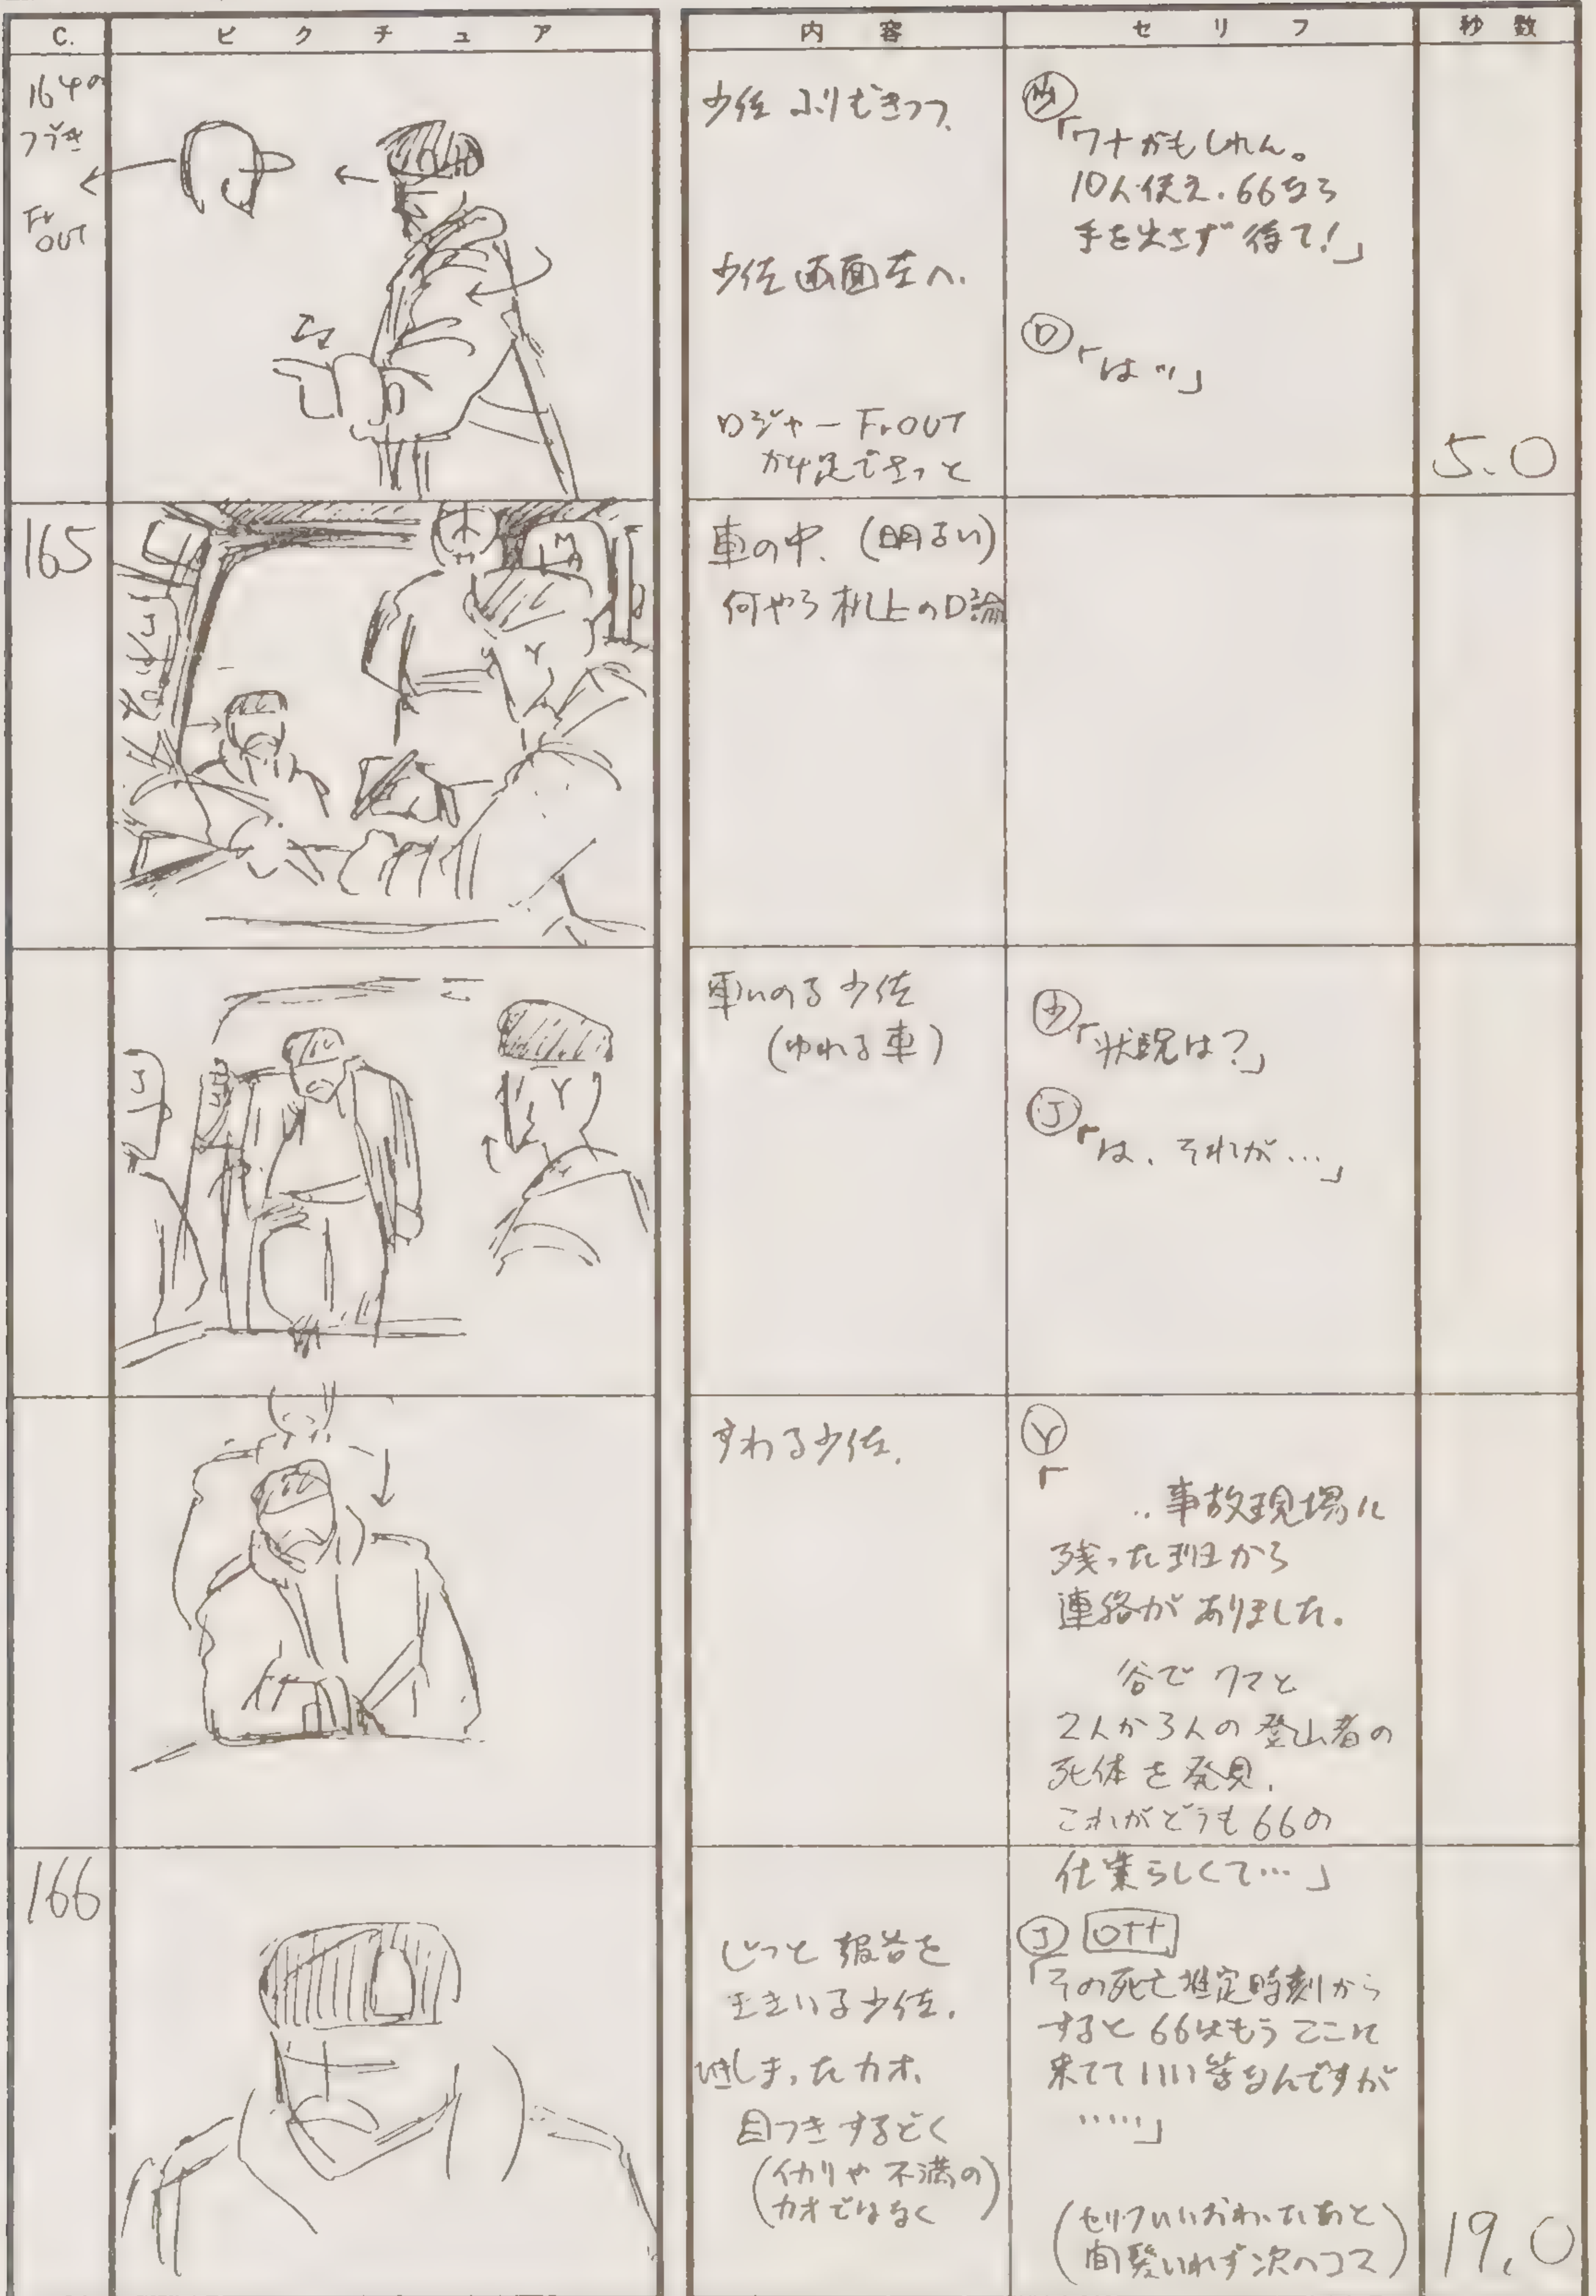 C.
ピクチュア
内容
セリフ
秒数
164の
つづき
Fr
OUT
少佐 ふりむきつつ、
少佐 画面左へ.
ロジャー Fr.OUT
少
「ワナかもしれん。
10人使え. 66なら
手を出さず 待て!」
ロ
「はッ」
5.0
165
車の中. (明るい)
何やら 机上の口論
車にのる 少佐
(ゆれる車)
少
「状況は?」
J
「は、それが…」
すわる少佐.
Y
「
‥事故現場に
残った班から
連絡が ありました.
谷で クマと
2人か3人の 登山者の
死体を発見.
これがどうも 66の
仕業らしくて…」
166
じっと 報告を
きいる少佐.
しまったカオ.
目つき するどく
(イカリや 不満の
カオではなく)
J
OFF
「その死亡推定時刻から
すると 66はもう ここに
来てて いい筈なんですが
……」
(セリフいいおわったあと
間髪いれず 次のコマ)
19.0